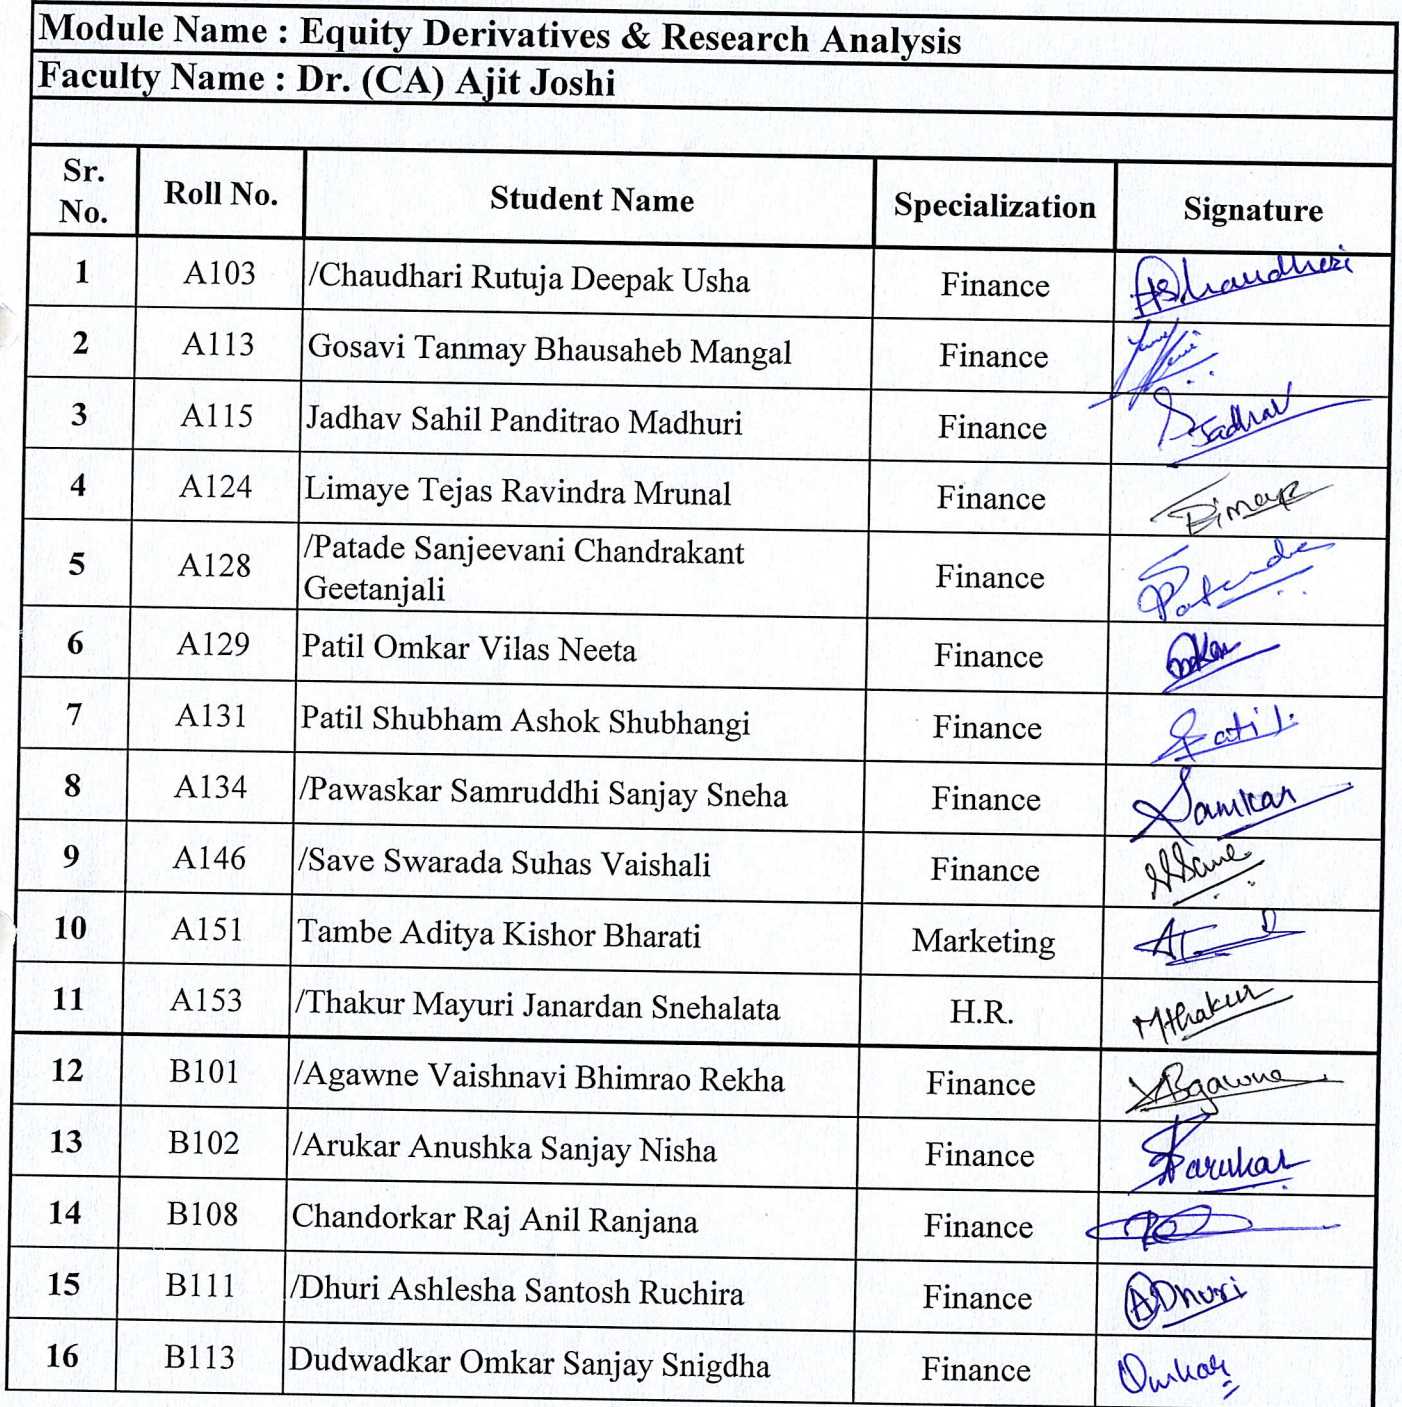 Module Name : Equity Derivatives & Research Analysis
Faculty Name : Dr. (CA) Ajit Joshi
Sr. No. Roll No. Student Name Specialization Signature
1 A103 /Chaudhari Rutuja Deepak Usha Finance
2 A113 Gosavi Tanmay Bhausaheb Mangal Finance
3 A115 Jadhav Sahil Panditrao Madhuri Finance Jadhav
4 A124 Limaye Tejas Ravindra Mrunal Finance
5 A128 /Patade Sanjeevani Chandrakant
Geetanjali Finance
6 A129 Patil Omkar Vilas Neeta Finance
7 A131 Patil Shubham Ashok Shubhangi Finance
8 A134 /Pawaskar Samruddhi Sanjay Sneha Finance
9 A146 /Save Swarada Suhas Vaishali Finance
10 A151 Tambe Aditya Kishor Bharati Marketing
11 A153 /Thakur Mayuri Janardan Snehalata H.R. Mthakur
12 B101 /Agawne Vaishnavi Bhimrao Rekha Finance
13 B102 /Arukar Anushka Sanjay Nisha Finance
14 B108 Chandorkar Raj Anil Ranjana Finance
15 B111 /Dhuri Ashlesha Santosh Ruchira Finance ADhuri
16 B113 Dudwadkar Omkar Sanjay Snigdha Finance Omkar